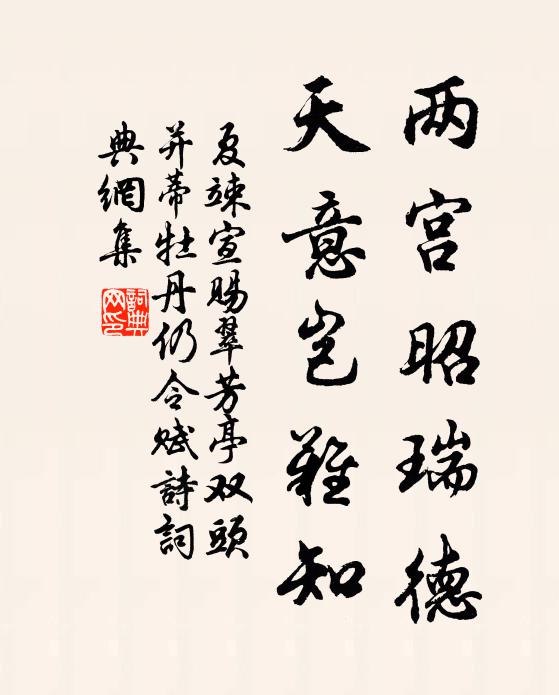 两宫昭瑞德
天意岂难知
夏竦宣赐翠芳亭双頭
并蒂牡丹仍令赋詩詞
典網集
詞典網印